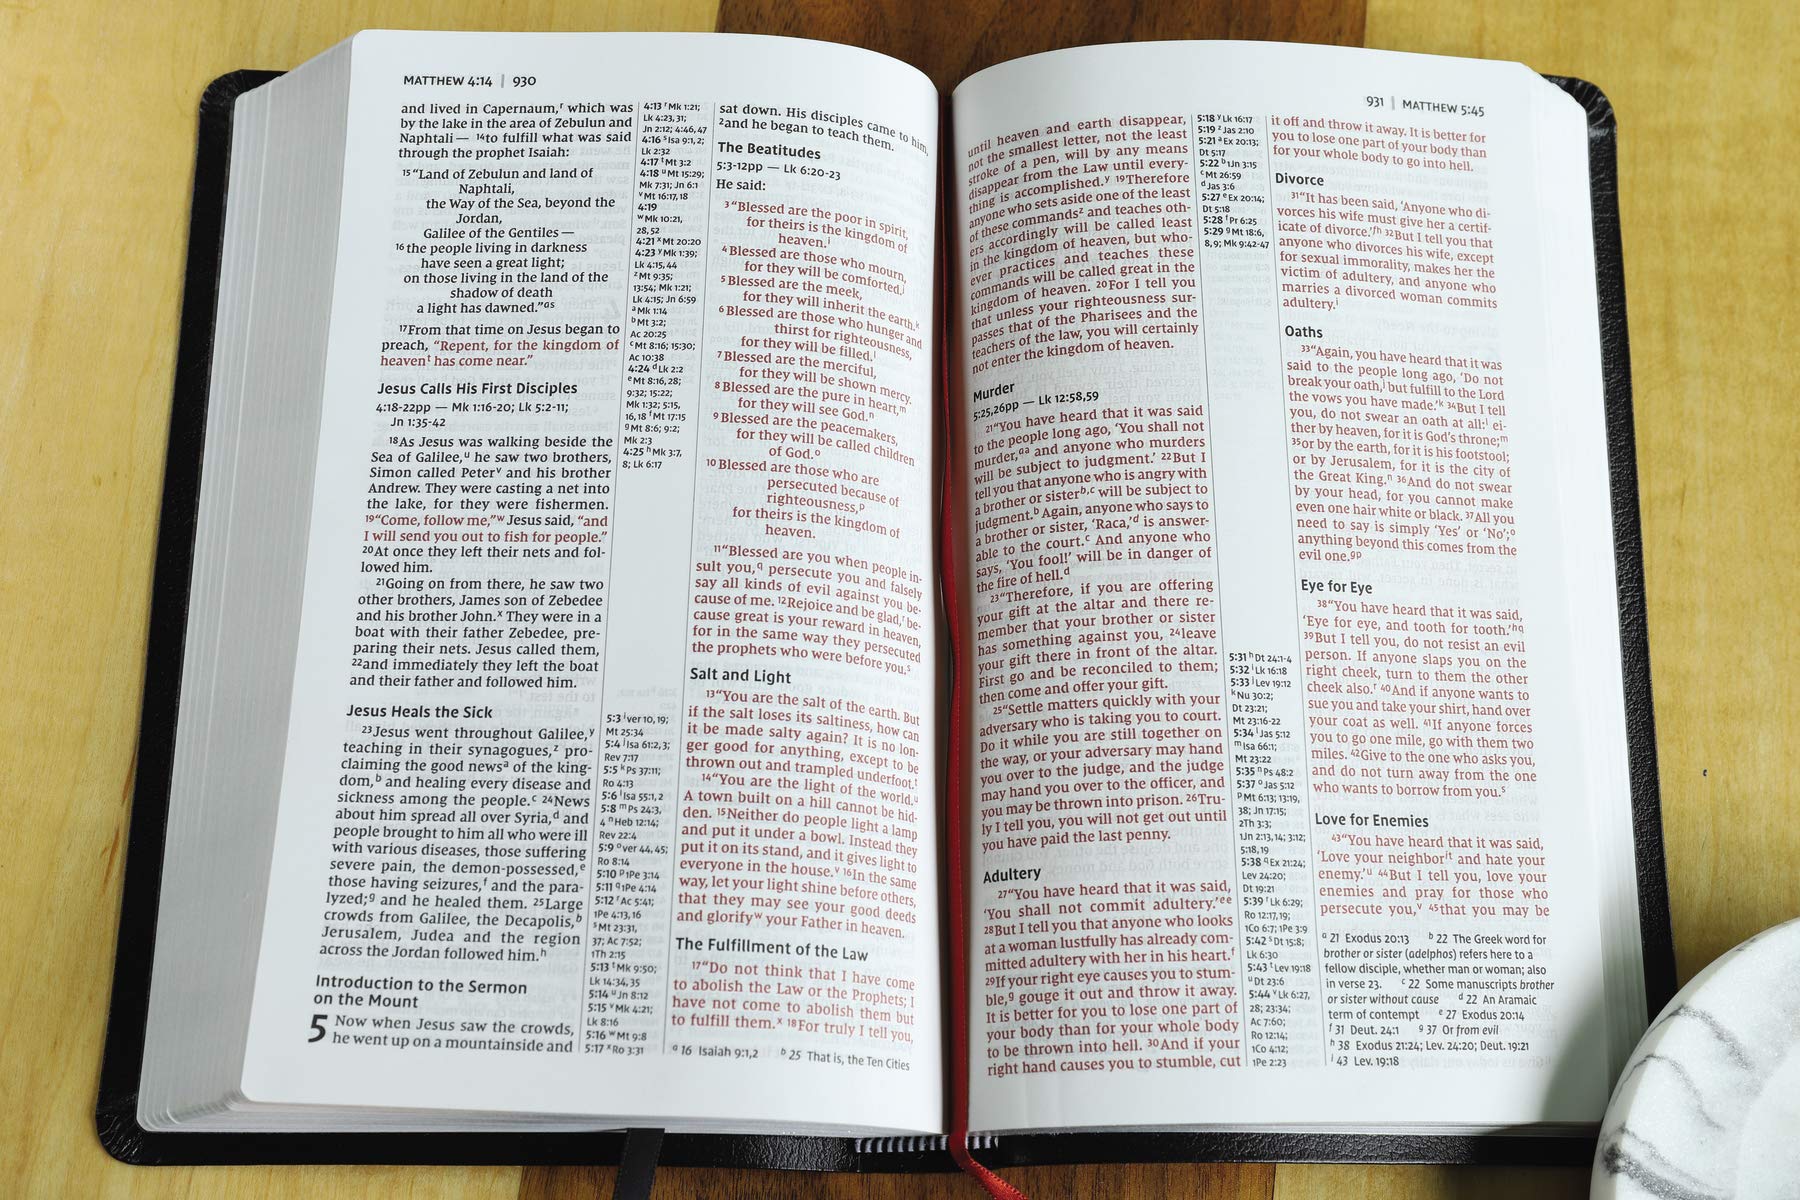 MATTHEW 4:14 | 930
and lived in Capernaum,ʳ which was
by the lake in the area of Zebulun and
Naphtali— ¹⁴to fulfill what was said
through the prophet Isaiah:
¹⁵“Land of Zebulun and land of
Naphtali,
the Way of the Sea, beyond the
Jordan,
Galilee of the Gentiles—
¹⁶the people living in darkness
have seen a great light;
on those living in the land of the
shadow of death
a light has dawned.”ᵃˢ
¹⁷From that time on Jesus began to
preach, “Repent, for the kingdom of
heavenᵗ has come near.”
Jesus Calls His First Disciples
4:18-22pp — Mk 1:16-20; Lk 5:2-11;
Jn 1:35-42
¹⁸As Jesus was walking beside the
Sea of Galilee,ᵘ he saw two brothers,
Simon called Peterᵛ and his brother
Andrew. They were casting a net into
the lake, for they were fishermen.
¹⁹“Come, follow me,”ʷ Jesus said, “and
I will send you out to fish for people.”
²⁰At once they left their nets and fol-
lowed him.
²¹Going on from there, he saw two
other brothers, James son of Zebedee
and his brother John.ˣ They were in a
boat with their father Zebedee, pre-
paring their nets. Jesus called them,
²²and immediately they left the boat
and their father and followed him.
Jesus Heals the Sick
²³Jesus went throughout Galilee,ʸ
teaching in their synagogues,ᶻ pro-
claiming the good newsᵃ of the king-
dom,ᵇ and healing every disease and
sickness among the people.ᶜ ²⁴News
about him spread all over Syria,ᵈ and
people brought to him all who were ill
with various diseases, those suffering
severe pain, the demon-possessed,ᵉ
those having seizures,ᶠ and the para-
lyzed;ᵍ and he healed them. ²⁵Large
crowds from Galilee, the Decapolis,ᵇ
Jerusalem, Judea and the region
across the Jordan followed him.ʰ
Introduction to the Sermon
on the Mount
5 Now when Jesus saw the crowds,
he went up on a mountainside and
4:13 ʳ Mk 1:21;
Lk 4:23, 31;
Jn 2:12; 4:46, 47
4:16 ˢ Isa 9:1, 2;
Lk 2:32
4:17 ᵗ Mt 3:2
4:18 ᵘ Mt 15:29;
Mk 7:31; Jn 6:1
ᵛ Mt 16:17, 18
4:19
ʷ Mk 10:21,
28, 52
4:21 ˣ Mt 20:20
4:23 ʸ Mk 1:39;
Lk 4:15, 44
ᶻ Mt 9:35;
13:54; Mk 1:21;
Lk 4:15; Jn 6:59
ᵃ Mk 1:14
ᵇ Mt 3:2;
Ac 20:25
ᶜ Mt 8:16; 15:30;
Ac 10:38
4:24 ᵈ Lk 2:2
ᵉ Mt 8:16, 28;
9:32; 15:22;
Mk 1:32; 5:15,
16, 18 ᶠ Mt 17:15
ᵍ Mt 8:6; 9:2;
Mk 2:3
4:25 ʰ Mk 3:7,
8; Lk 6:17
5:3 ⁱ ver 10, 19;
Mt 25:34
5:4 ʲ Isa 61:2, 3;
Rev 7:17
5:5 ᵏ Ps 37:11;
Ro 4:13
5:6 ˡ Isa 55:1, 2
5:8 ᵐ Ps 24:3,
4 ⁿ Heb 12:14;
Rev 22:4
5:9 ᵒ ver 44, 45;
Ro 8:14
5:10 ᵖ 1Pe 3:14
5:11 q 1Pe 4:14
5:12 ʳ Ac 5:41;
1Pe 4:13, 16
ˢ Mt 23:31,
37; Ac 7:52;
1Th 2:15
5:13 ᵗ Mk 9:50;
Lk 14:34, 35
5:14 ᵘ Jn 8:12
5:15 ᵛ Mk 4:21;
Lk 8:16
5:16 ʷ Mt 9:8
5:17 ˣ Ro 3:31
sat down. His disciples came to him,
²and he began to teach them.
The Beatitudes
5:3-12pp — Lk 6:20-23
He said:
³“Blessed are the poor in spirit,
for theirs is the kingdom of
heaven.ⁱ
⁴Blessed are those who mourn,
for they will be comforted.ʲ
⁵Blessed are the meek,
for they will inherit the earth.ᵏ
⁶Blessed are those who hunger and
thirst for righteousness,
for they will be filled.ˡ
⁷Blessed are the merciful,
for they will be shown mercy.
⁸Blessed are the pure in heart,ᵐ
for they will see God.ⁿ
⁹Blessed are the peacemakers,
for they will be called children
of God.ᵒ
¹⁰Blessed are those who are
persecuted because of
righteousness,ᵖ
for theirs is the kingdom of
heaven.
¹¹“Blessed are you when people in-
sult you,q persecute you and falsely
say all kinds of evil against you be-
cause of me. ¹²Rejoice and be glad,ʳ be-
cause great is your reward in heaven,
for in the same way they persecuted
the prophets who were before you.ˢ
Salt and Light
¹³“You are the salt of the earth. But
if the salt loses its saltiness, how can
it be made salty again? It is no lon-
ger good for anything, except to be
thrown out and trampled underfoot.ᵗ
¹⁴“You are the light of the world.ᵘ
A town built on a hill cannot be hid-
den. ¹⁵Neither do people light a lamp
and put it under a bowl. Instead they
put it on its stand, and it gives light to
everyone in the house.ᵛ ¹⁶In the same
way, let your light shine before others,
that they may see your good deeds
and glorifyʷ your Father in heaven.
The Fulfillment of the Law
¹⁷“Do not think that I have come
to abolish the Law or the Prophets; I
have not come to abolish them but
to fulfill them.ˣ ¹⁸For truly I tell you,
ᵃ 16 Isaiah 9:1,2 ᵇ 25 That is, the Ten Cities
931 | MATTHEW 5:45
until heaven and earth disappear,
not the smallest letter, not the least
stroke of a pen, will by any means
disappear from the Law until every-
thing is accomplished.ʸ ¹⁹Therefore
anyone who sets aside one of the least
of these commandsᶻ and teaches oth-
ers accordingly will be called least
in the kingdom of heaven, but who-
ever practices and teaches these
commands will be called great in the
kingdom of heaven. ²⁰For I tell you
that unless your righteousness sur-
passes that of the Pharisees and the
teachers of the law, you will certainly
not enter the kingdom of heaven.
Murder
5:25,26pp — Lk 12:58,59
²¹“You have heard that it was said
to the people long ago, ‘You shall not
murder,ᵃᵃ and anyone who murders
will be subject to judgment.’ ²²But I
tell you that anyone who is angry with
a brother or sisterᵇ,ᶜ will be subject to
judgment.ᵇ Again, anyone who says to
a brother or sister, ‘Raca,’ᵈ is answer-
able to the court.ᶜ And anyone who
says, ‘You fool!’ will be in danger of
the fire of hell.ᵈ
²³“Therefore, if you are offering
your gift at the altar and there re-
member that your brother or sister
has something against you, ²⁴leave
your gift there in front of the altar.
First go and be reconciled to them;
then come and offer your gift.
²⁵“Settle matters quickly with your
adversary who is taking you to court.
Do it while you are still together on
the way, or your adversary may hand
you over to the judge, and the judge
may hand you over to the officer, and
you may be thrown into prison. ²⁶Tru-
ly I tell you, you will not get out until
you have paid the last penny.
Adultery
²⁷“You have heard that it was said,
‘You shall not commit adultery.’ᵉᵉ
²⁸But I tell you that anyone who looks
at a woman lustfully has already com-
mitted adultery with her in his heart.ᶠ
²⁹If your right eye causes you to stum-
ble,ᵍ gouge it out and throw it away.
It is better for you to lose one part of
your body than for your whole body
to be thrown into hell. ³⁰And if your
right hand causes you to stumble, cut
5:18 ʸ Lk 16:17
5:19 ᶻ Jas 2:10
5:21 ᵃ Ex 20:13;
Dt 5:17
5:22 ᵇ 1Jn 3:15
ᶜ Mt 26:59
ᵈ Jas 3:6
5:27 ᵉ Ex 20:14;
Dt 5:18
5:28 ᶠ Pr 6:25
5:29 ᵍ Mt 18:6,
8, 9; Mk 9:42-47
5:31 ʰ Dt 24:1-4
5:32 ⁱ Lk 16:18
5:33 ʲ Lev 19:12
ᵏ Nu 30:2;
Dt 23:21;
Mt 23:16-22
5:34 ˡ Jas 5:12
ᵐ Isa 66:1;
Mt 23:22
5:35 ⁿ Ps 48:2
5:37 ᵒ Jas 5:12
ᵖ Mt 6:13; 13:19,
38; Jn 17:15;
2Th 3:3;
1Jn 2:13, 14; 3:12;
5:18, 19
5:38 q Ex 21:24;
Lev 24:20;
Dt 19:21
5:39 ʳ Lk 6:29;
Ro 12:17, 19;
1Co 6:7; 1Pe 3:9
5:42 ˢ Dt 15:8;
Lk 6:30
5:43 ᵗ Lev 19:18
ᵘ Dt 23:6
5:44 ᵛ Lk 6:27,
28; 23:34;
Ac 7:60;
Ro 12:14;
1Co 4:12;
1Pe 2:23
it off and throw it away. It is better for
you to lose one part of your body than
for your whole body to go into hell.
Divorce
³¹“It has been said, ‘Anyone who di-
vorces his wife must give her a certif-
icate of divorce.’ᶠʰ ³²But I tell you that
anyone who divorces his wife, except
for sexual immorality, makes her the
victim of adultery, and anyone who
marries a divorced woman commits
adultery.ⁱ
Oaths
³³“Again, you have heard that it was
said to the people long ago, ‘Do not
break your oath,ʲ but fulfill to the Lord
the vows you have made.’ᵏ ³⁴But I tell
you, do not swear an oath at all:ˡ ei-
ther by heaven, for it is God’s throne;ᵐ
³⁵or by the earth, for it is his footstool;
or by Jerusalem, for it is the city of
the Great King.ⁿ ³⁶And do not swear
by your head, for you cannot make
even one hair white or black. ³⁷All you
need to say is simply ‘Yes’ or ‘No’;ᵒ
anything beyond this comes from the
evil one.ᵍᵖ
Eye for Eye
³⁸“You have heard that it was said,
‘Eye for eye, and tooth for tooth.’ʰq
³⁹But I tell you, do not resist an evil
person. If anyone slaps you on the
right cheek, turn to them the other
cheek also.ʳ ⁴⁰And if anyone wants to
sue you and take your shirt, hand over
your coat as well. ⁴¹If anyone forces
you to go one mile, go with them two
miles. ⁴²Give to the one who asks you,
and do not turn away from the one
who wants to borrow from you.ˢ
Love for Enemies
⁴³“You have heard that it was said,
‘Love your neighborⁱᵗ and hate your
enemy.’ᵘ ⁴⁴But I tell you, love your
enemies and pray for those who
persecute you,ᵛ ⁴⁵that you may be
ᵃ 21 Exodus 20:13 ᵇ 22 The Greek word for
brother or sister (adelphos) refers here to a
fellow disciple, whether man or woman; also
in verse 23. ᶜ 22 Some manuscripts brother
or sister without cause ᵈ 22 An Aramaic
term of contempt ᵉ 27 Exodus 20:14
ᶠ 31 Deut. 24:1 ᵍ 37 Or from evil
ʰ 38 Exodus 21:24; Lev. 24:20; Deut. 19:21
ⁱ 43 Lev. 19:18